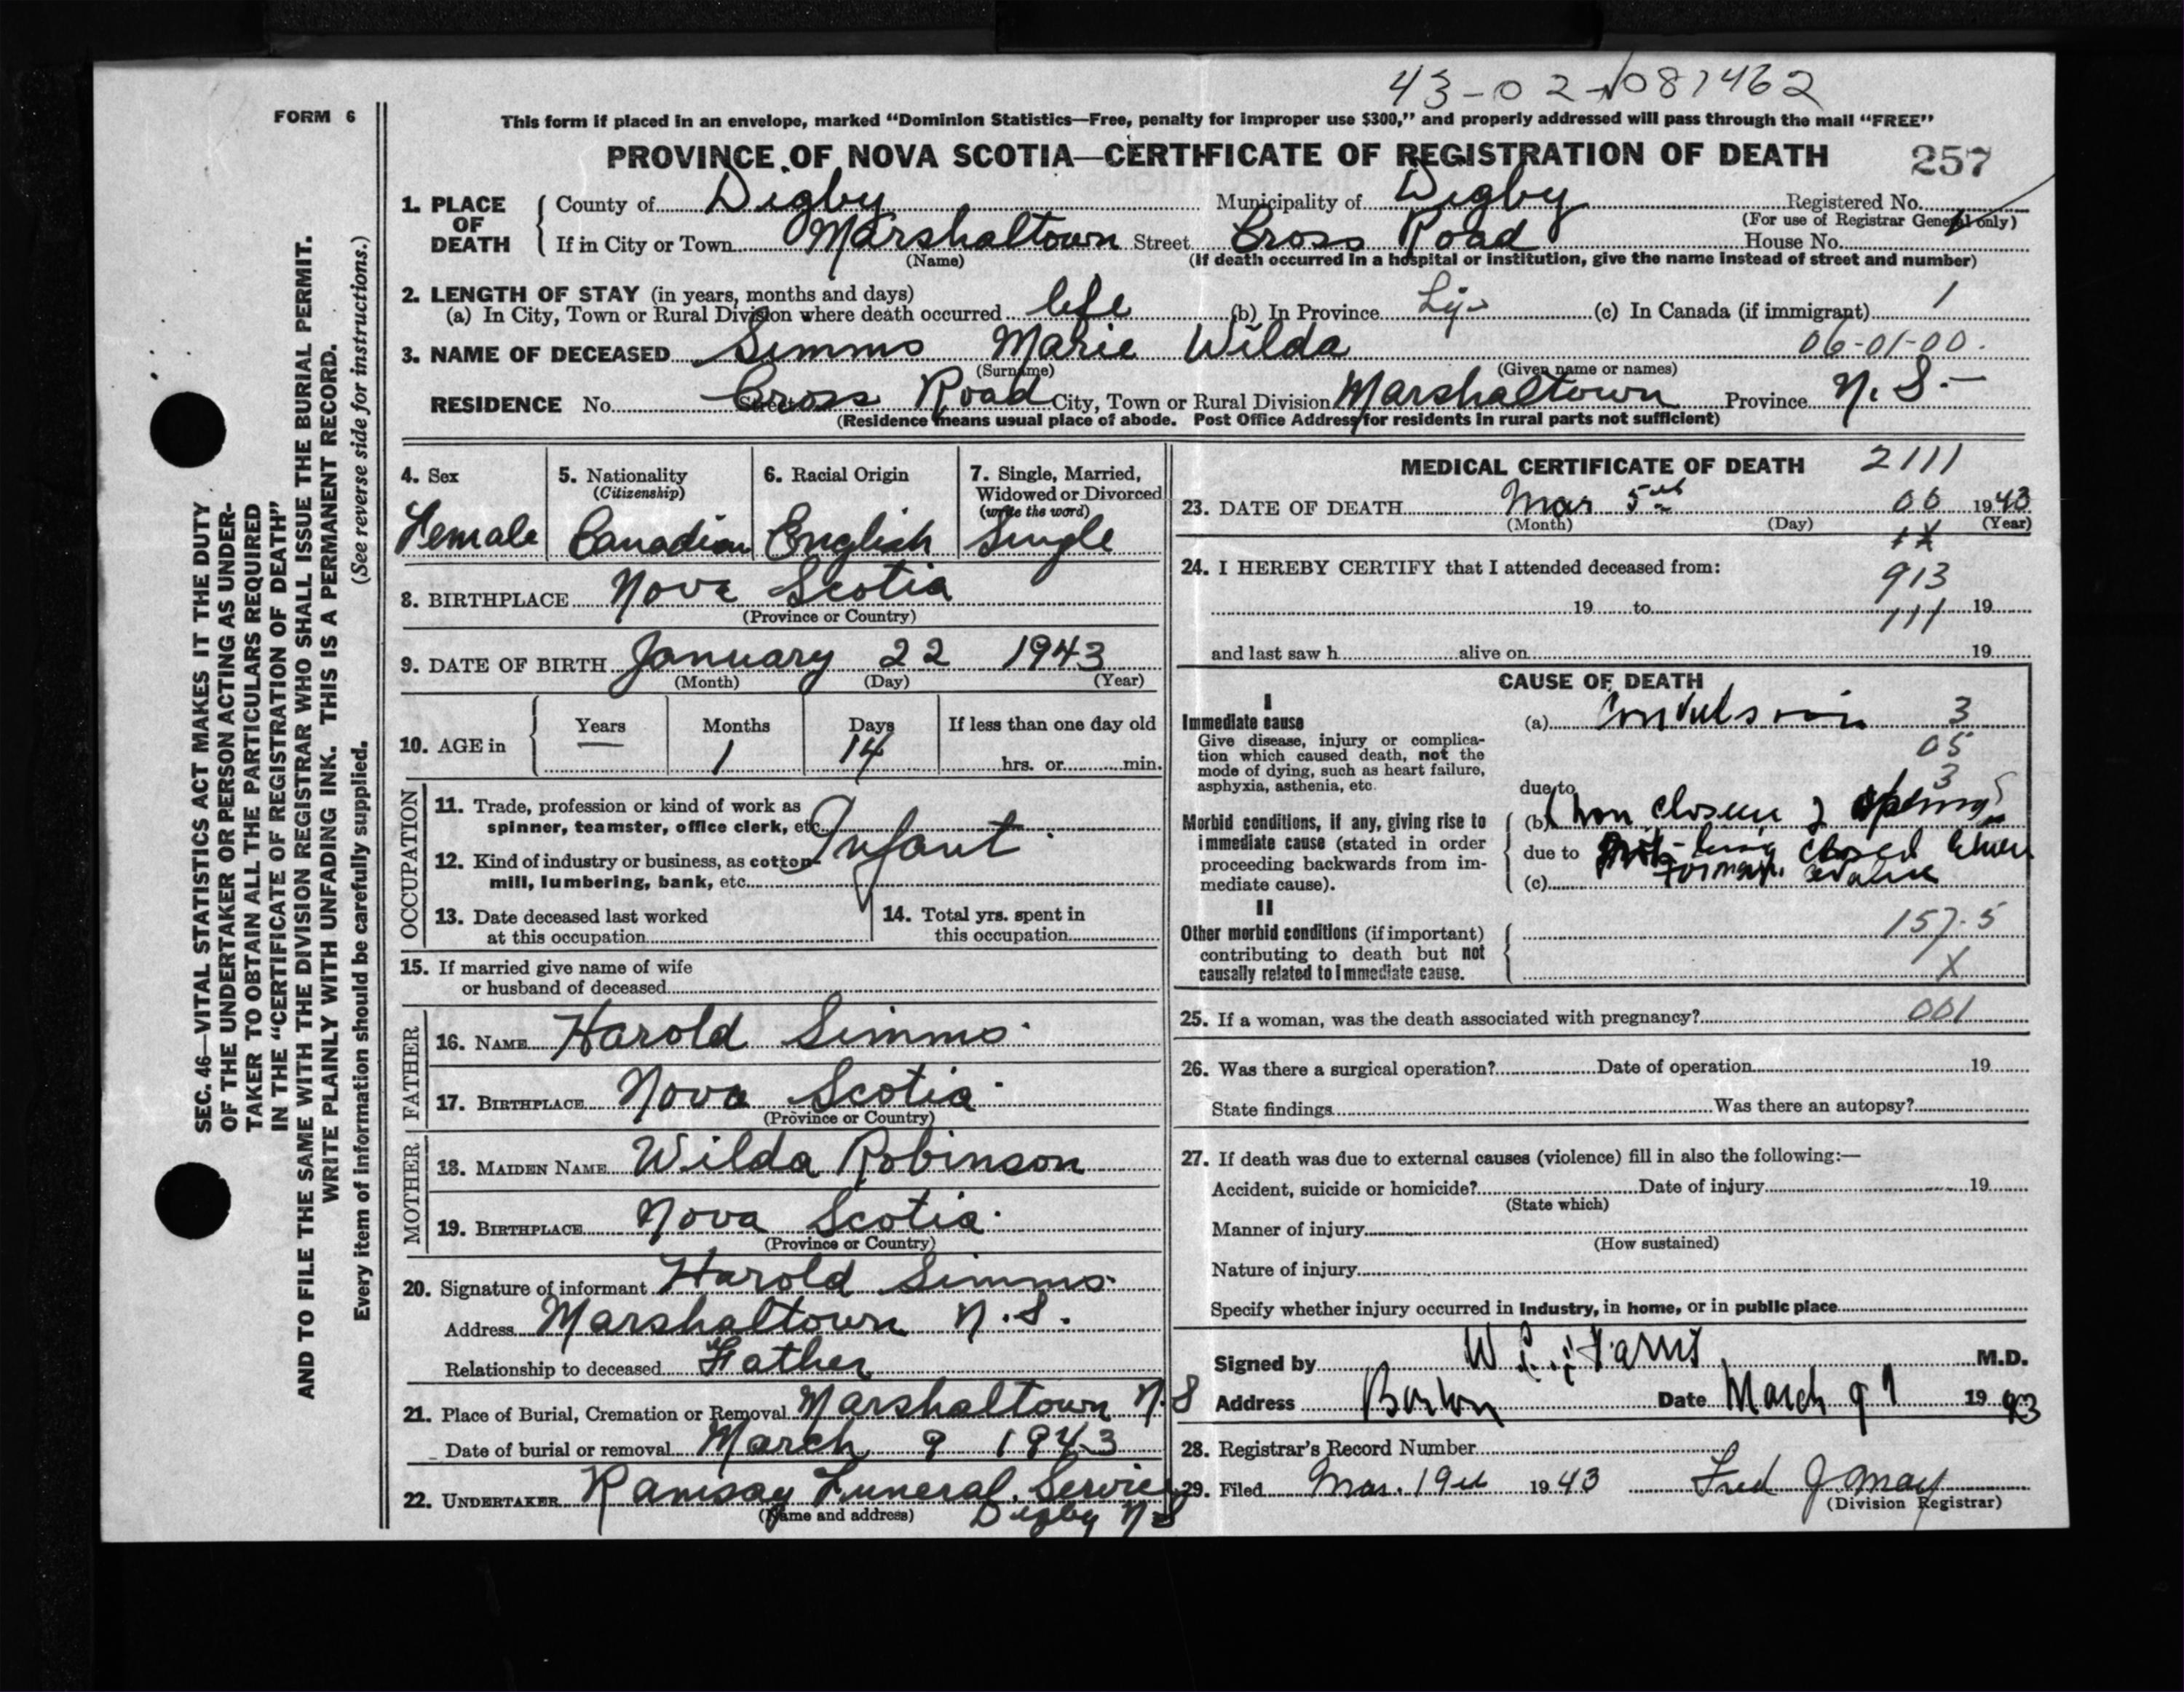 43-02-087462
FORM 6
This form if placed in an envelope, marked “Dominion Statistics—Free, penalty for improper use $300,” and properly addressed will pass through the mail “FREE”
PROVINCE OF NOVA SCOTIA—CERTIFICATE OF REGISTRATION OF DEATH 257
1. PLACE OF DEATH { County of Digby Municipality of Digby Registered No.
(For use of Registrar General only)
If in City or Town Marshaltown Street Cross Road House No.
(Name) (If death occurred in a hospital or institution, give the name instead of street and number)
2. LENGTH OF STAY (in years, months and days)
(a) In City, Town or Rural Division where death occurred life (b) In Province Life (c) In Canada (if immigrant) 1
3. NAME OF DECEASED Simms Marie Wilda 06-01-00.
(Surname) (Given name or names)
RESIDENCE No. Street Cross Road City, Town or Rural Division Marshaltown Province N. S.
(Residence means usual place of abode. Post Office Address for residents in rural parts not sufficient)
SEC. 46—VITAL STATISTICS ACT MAKES IT THE DUTY
OF THE UNDERTAKER OR PERSON ACTING AS UNDER-
TAKER TO OBTAIN ALL THE PARTICULARS REQUIRED
IN THE “CERTIFICATE OF REGISTRATION OF DEATH”
AND TO FILE THE SAME WITH THE DIVISION REGISTRAR WHO SHALL ISSUE THE BURIAL PERMIT.
WRITE PLAINLY WITH UNFADING INK. THIS IS A PERMANENT RECORD.
Every item of information should be carefully supplied. (See reverse side for instructions.)
4. Sex 5. Nationality 6. Racial Origin 7. Single, Married,
(Citizenship) Widowed or Divorced
(write the word)
Female Canadian English Single
8. BIRTHPLACE Nova Scotia
(Province or Country)
9. DATE OF BIRTH January 22 1943
(Month) (Day) (Year)
10. AGE in { Years Months Days If less than one day old
— 1 14 hrs. or min.
OCCUPATION
11. Trade, profession or kind of work as
spinner, teamster, office clerk, etc. Infant
12. Kind of industry or business, as cotton-
mill, lumbering, bank, etc.
13. Date deceased last worked
at this occupation
14. Total yrs. spent in
this occupation
15. If married give name of wife
or husband of deceased
FATHER
16. NAME Harold Simms
17. BIRTHPLACE Nova Scotia
(Province or Country)
MOTHER
18. MAIDEN NAME Wilda Robinson
19. BIRTHPLACE Nova Scotia
(Province or Country)
20. Signature of informant Harold Simms
Address Marshaltown N.S.
Relationship to deceased Father
21. Place of Burial, Cremation or Removal Marshaltown N.S
Date of burial or removal March 9 1943
22. UNDERTAKER Ramsay Funeral Service
(Name and address) Digby NS
MEDICAL CERTIFICATE OF DEATH 2111
23. DATE OF DEATH Mar 5th 06 1943
(Month) (Day) (Year)
24. I HEREBY CERTIFY that I attended deceased from:
913
19 to 19
111
and last saw h alive on 19
CAUSE OF DEATH
I
Immediate cause (a) Convulsion 3
Give disease, injury or complica-
tion which caused death, not the
mode of dying, such as heart failure,
asphyxia, asthenia, etc.
05
3
due to
Morbid conditions, if any, giving rise to
immediate cause (stated in order
proceeding backwards from im-
mediate cause).
(b) Non closure
due to being closed
(c)
II
Other morbid conditions (if important)
contributing to death but not
causally related to immediate cause.
157.5
X
25. If a woman, was the death associated with pregnancy? 001
26. Was there a surgical operation? Date of operation 19
State findings Was there an autopsy?
27. If death was due to external causes (violence) fill in also the following:—
Accident, suicide or homicide? Date of injury 19
(State which)
Manner of injury
(How sustained)
Nature of injury
Specify whether injury occurred in industry, in home, or in public place
Signed by W M.D.
Address Barton Date March 9 1943
28. Registrar's Record Number
29. Filed Mar. 19th 1943 Fred J. May
(Division Registrar)